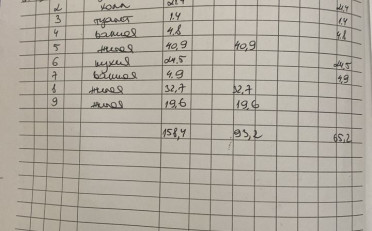 2 холл 21,4 21,4
3 туалет 1,4 1,4
4 ванная 4,8 4,8
5 жилая 40,9 40,9
6 кухня 24,5 24,5
7 ванная 4,9 4,9
8 жилая 32,7 32,7
9 жилая 19,6 19,6
158,4 93,2 65,2